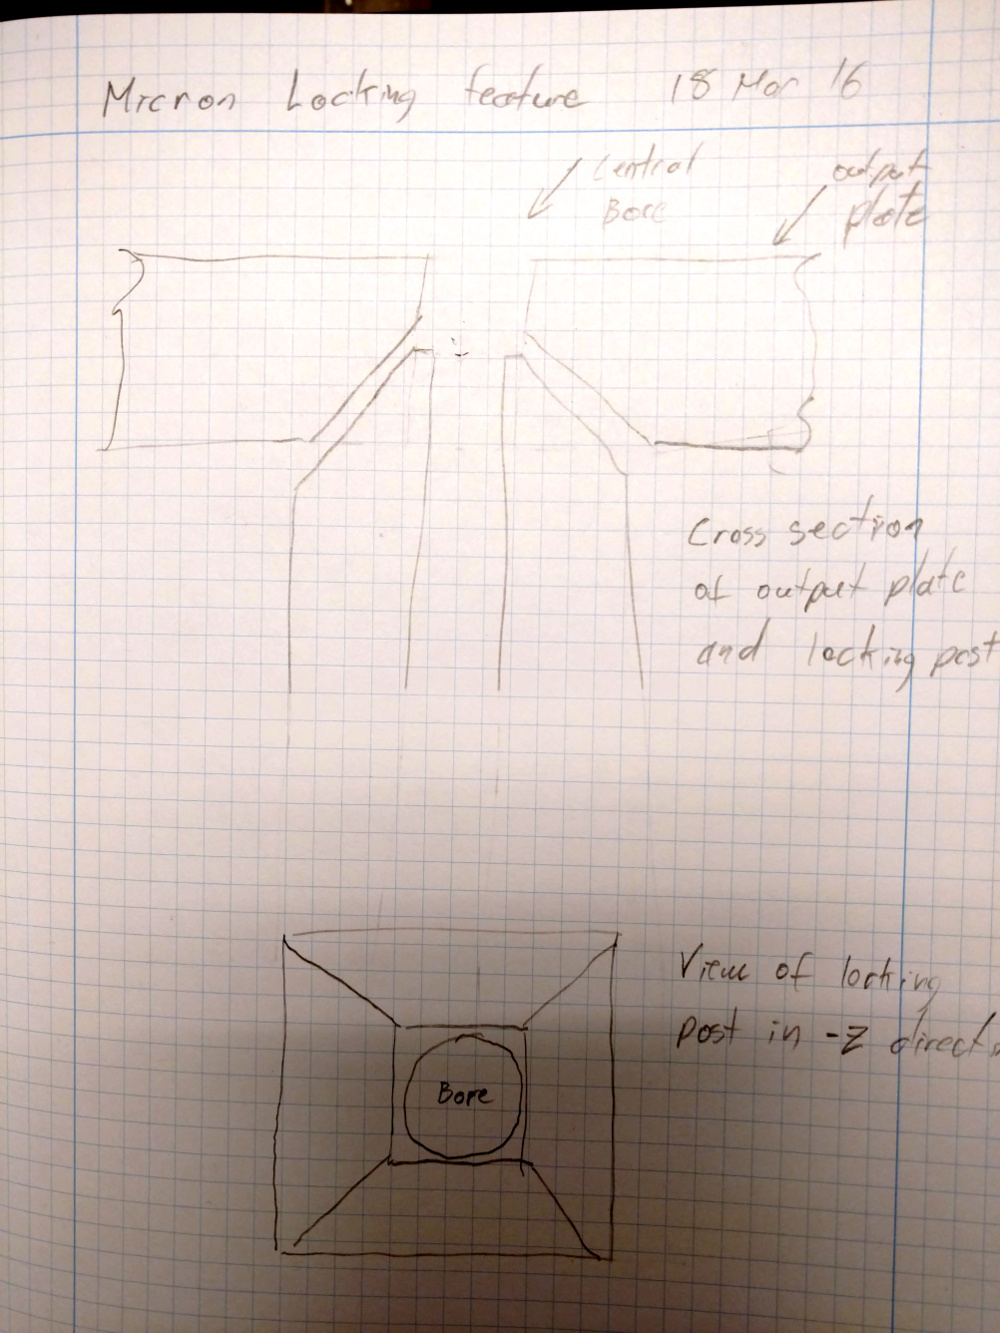 Micron Locking feature 18 Mar 16
Central
Bore
output
plate
Cross section
of output plate
and locking post
Bore
View of locking
post in -Z direct